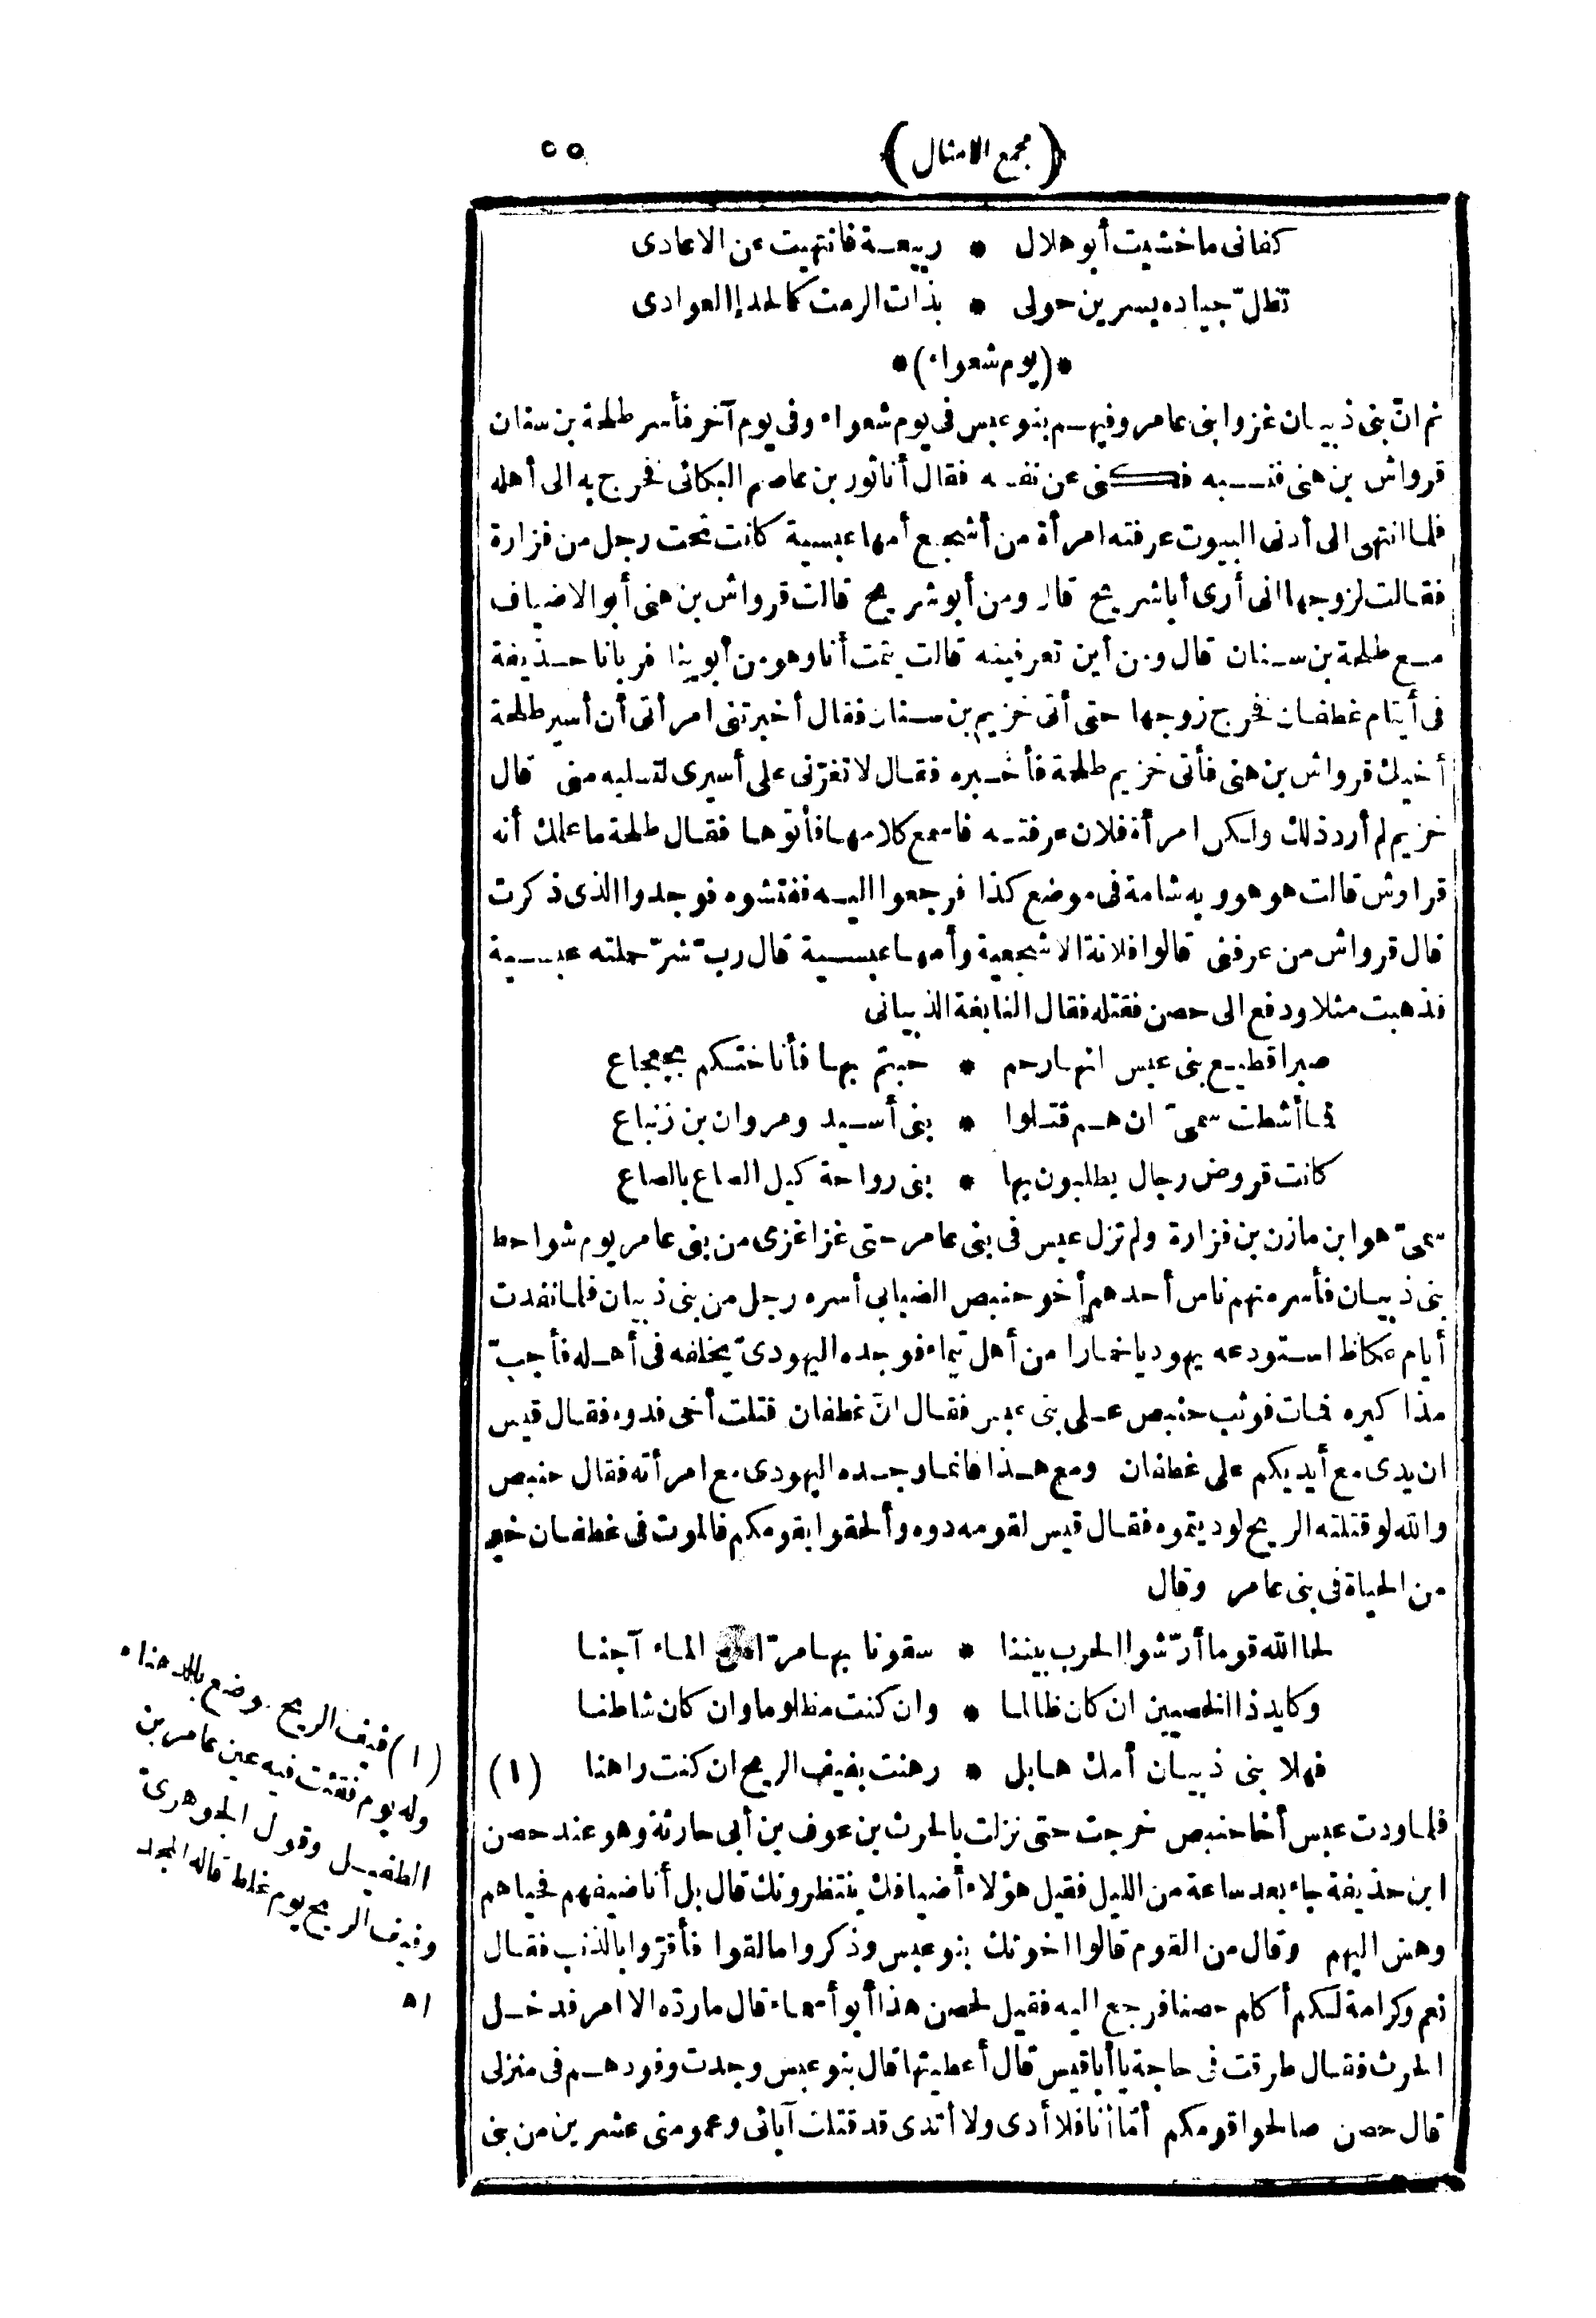 (مجمع الامثال) ٥٥
كفانى ما خشيت أبو هلال * ربيعة فانتهيت عن الاعادى
تظلّ جياده يسرين حولى * بذات الرمث كالحدإ العوادى
*(يوم شعواء)*
ثم انّ بنى ذبيان غزوا بنى عامر وفيهم بنو عبس فى يوم شعواء وفى يوم آخر فأسر طلحة بن سنان
قرواش بن هنى فنسبه فكنى عن نفسه فقال أنا ثور بن عاصم البكائى فخرج به الى أهله
فلما انتهى الى أدنى البيوت عرفته امرأة من أشجع أمها عبسية كانت تحت رجل من فزارة
فقالت لزوجها انى أرى أبا شريح قال ومن أبو شريح قالت قرواش بن هنى أبو الاضياف
مع طلحة بن سنان قال ومن أين تعرفينه قالت يتمت أنا وهو من أبوينا فربانا حذيفة
فى أيتام غطفان فخرج زوجها حتى أتى خزيم بن سنان فقال أخبرتنى امرأتى أن أسير طلحة
أخيك قرواش بن هنى فأتى خزيم طلحة فأخبره فقال لا تغرّنى على أسيرى لتسلبه منى قال
خزيم لم أرد ذلك ولكن امرأة فلان عرفته فاسمع كلامها فأتوها فقال طلحة ما علمك أنه
قراوش قالت هو هو وبه شامة فى موضع كذا فرجعوا اليه ففتشوه فوجدوا الذى ذكرت
قال قرواش من عرفنى قالوا فلانة الاشجعية وأمها عبسية قال ربّ شرّ حملته عبسية
فذهبت مثلا ودفع الى حصن فقتله فقال النابغة الذبيانى
صبرا قطيع بنى عبس انها رحم * حبتم بها فأناختكم بجعجاع
فما أشطت سمىّ ان هم قتلوا * بنى أسيد ومروان بن زنباع
كانت قروض رجال يطلبون بها * بنى رواحة كيل الصاع بالصاع
سمىّ هو ابن مازن بن فزارة ولم تزل عبس فى بنى عامر حتى غزا غزى من بنى عامر يوم شواحط
بنى ذبيان فأسر منهم ناس أحدهم أخو حنبص الضبابى أسره رجل من بنى ذبيان فلما نفدت
أيام عكاظ استودعه يهوديا خمارا من أهل تيماء فوجده اليهودىّ يخلفه فى أهله فأجبّ
مذاكيره فمات فوثب حنبص على بنى عبس فقال انّ غطفان قتلت أخى فدوه فقال قيس
ان يدى مع أيديكم على غطفان ومع هذا فانما وجده اليهودى مع امرأته فقال حنبص
والله لو قتلته الريح لوديتموه فقال قيس لقومه دوه وألحقوا بقومكم فالموت فى غطفان خير
من الحياة فى بنى عامر وقال
لحا الله قوما أرّشوا الحرب بيننا * سقونا بها مرّا من الماء آجنا
وكايد ذا الخصيين ان كان ظالما * وان كنت مظلوما وان كان شاطنا
فهلا بنى ذبيان أمك هابل * رهنت بفيف الريح ان كنت راهنا (١)
فلما ودت عبس أخا حنبص خرجت حتى نزلت بالحرث بن عوف بن أبى حارثة وهو عند حصن
ابن حذيفة جاء بعد ساعة من الليل فقيل هؤلاء أضيافك ينتظرونك قال بل أنا ضيفهم فحياهم
وهش اليهم وقال من القوم قالوا اخوتك بنو عبس وذكروا ما لقوا فأقرّوا بالذنب فقال
نعم وكرامة لكم أكلم حصنا فرجع اليه فقيل لحصن هذا أبو أسماء قال ما ردّه الا امر فدخل
الحرث فقال طرقت فى حاجة يا أبا قيس قال أعطيتها قال بنو عبس وجدت وفودهم فى منزلى
قال حصن صالحوا قومكم أمّا أنا فلا أدى ولا أتدى قد قتلت آبائى وعمومتى عشرين من بنى
(١) فيف الريح موضع بالدهناء
وله يوم فقئت فيه عين عامر بن
الطفيل وقول الجوهرىّ
وفيف الريح يوم غلط قاله المجد
اه